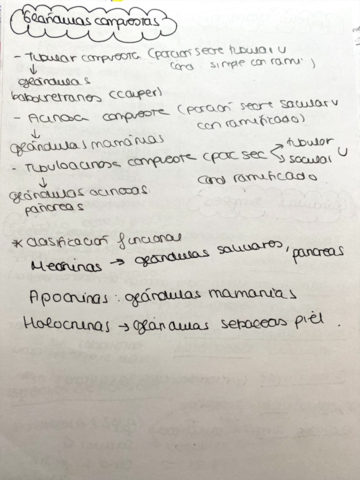 Glándulas compuestas
- Tubular compuesta (porción secre tubular U
cond simple con rami.)
↓
glándulas
babouretranes (cauper)
- Acinosa compuesta (porción secre sacular U
con ramificado)
↓
glándulas mamarias
- Tubuloacinosa compuesta (porc sec → tubular
→ sacular U
cond ramificado
↓
glándulas acinosas
páncreas
* clasificación funcional
Merocrinas → glándulas salivares, páncreas
Apocrinas : glándulas mamarias
Holocrinas → glándulas sebáceas piel.